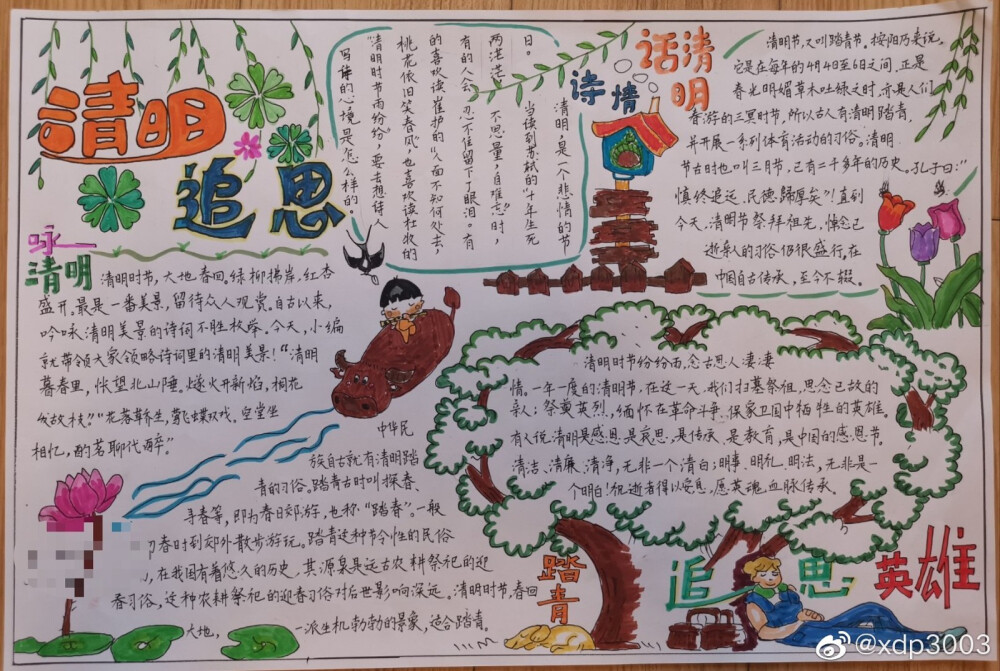 清明
追思
咏
清明
清明时节,大地春回。绿柳拂岸,红杏
盛开。最是一番美景,留待众人观赏。自古以来,
吟咏清明美景的诗词不胜枚举,今天,小编
就带领大家领略诗词里的清明美景!“清明
暮春里,怅望北山陲。燧火开新焰,桐花
发故枝。”“花落草齐生,莺飞蝶双戏。空堂坐
相忆,酌茗聊代醉。”
清明是一个悲情的节
日。当读到苏轼的“十年生死
两茫茫,不思量,自难忘”时,
有的人会忍不住留下了眼泪。有
的喜欢读崔护的“人面不知何处去,
桃花依旧笑春风”,也喜欢读杜牧的
“清明时节雨纷纷”,要去想诗人
写诗的心境是怎么样的。
诗情
话清明
清明节,又叫踏青节。按阳历来说,
它是在每年的4月4日至6日之间,正是
春光明媚草木吐绿之时,亦是人们
春游的三冥时节,所以古人有清明踏青,
并开展一系列体育活动的习俗。清明
节古时也叫三月节,已有二千多年的历史。孔子曰:“
慎终追远,民德归厚矣”!直到
今天,清明节祭拜祖先,悼念已
逝亲人的习俗仍很盛行。在
中国自古传承,至今不辍。
中华民
族自古就有清明踏
青的习俗。踏青古时叫探春、
寻春等,即为春日郊游,也称“踏春”。一般
春时到郊外散步游玩。踏青这种节令性的民俗
,在我国有着悠久的历史,其源泉是远古农耕祭祀的迎
春习俗,这种农耕祭祀的迎春习俗对后世影响深远。清明时节,春回
大地,一派生机勃勃的景象,适合踏青。
踏青
清明时节纷纷雨,念古思人凄凄
情。一年一度的清明节,在这一天,我们扫墓祭祖,思念已故的
亲人;祭奠英烈,缅怀在革命斗争、保家卫国中牺牲的英雄。
有人说清明是感恩,是哀思,是传承,是教育,是中国的感恩节。
清洁、清廉、清净,无非一个清白;明事、明礼、明法,无非是一
个明白!祝逝者得以安息,愿英魂血脉传承。
追思英雄
@xdp3003